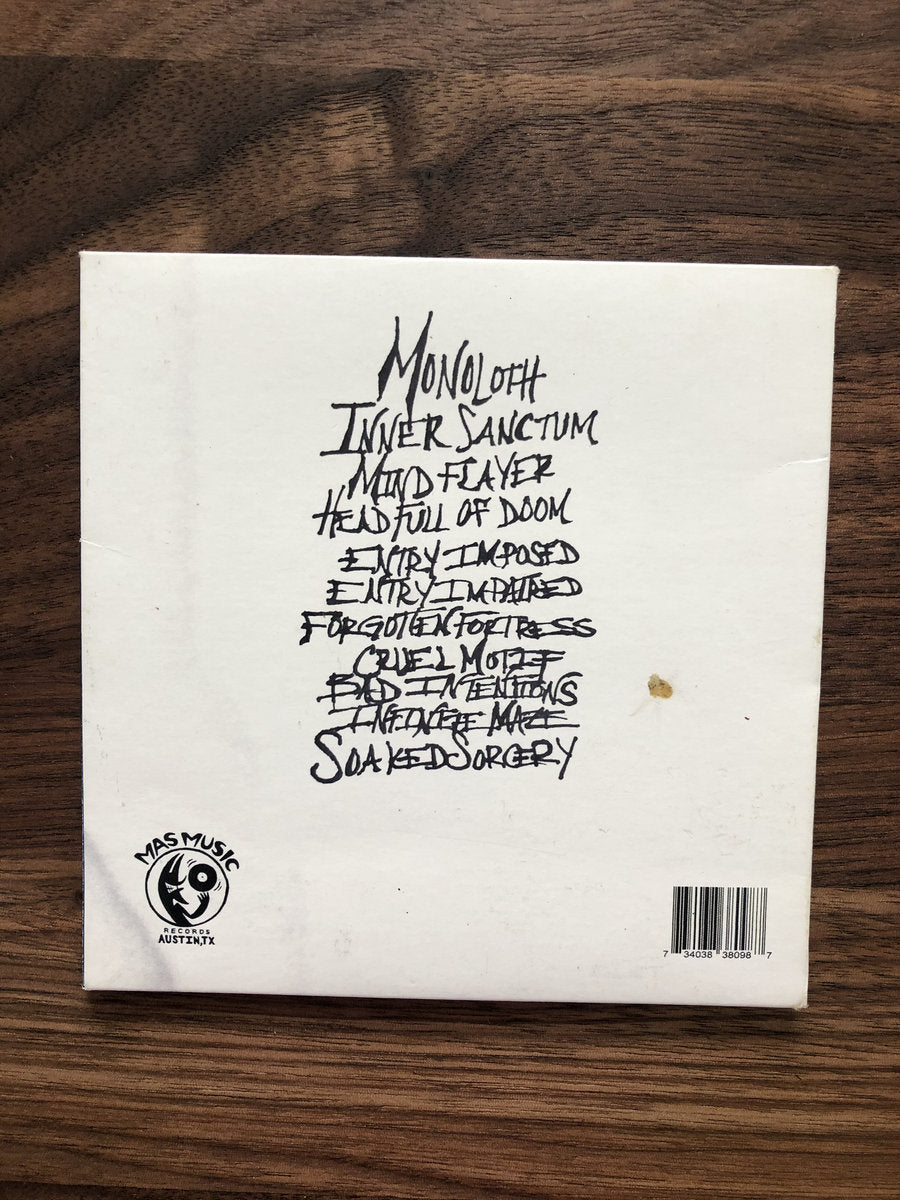 MONOLOTH
INNER SANCTUM
MIND FLAYER
HEAD FULL OF DOOM
ENTRY IMPOSED
ENTRY IMPAIRED
FORGOTTEN FORTRESS
CRUEL MOTIF
BAD INTENTIONS
INFINITE MAZE
SOAKED SORCERY
MAS MUSIC
RECORDS
AUSTIN,TX
7 34038 38098 7